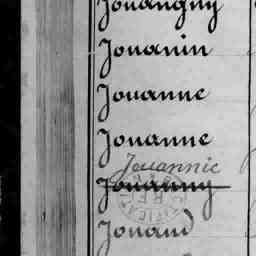 Jouangny
Jouanin
Jouanne
Jouanne
Jouannic
Jouanny
Jouaud